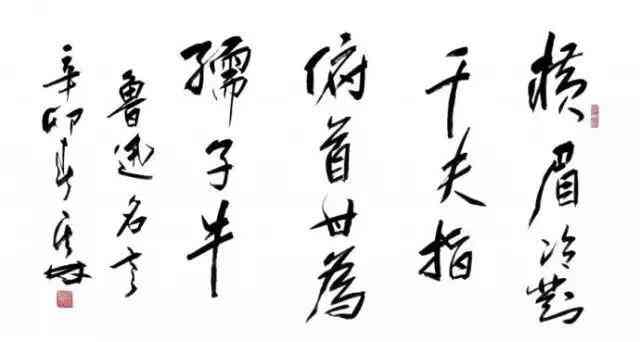 横眉冷對
千夫指
俯首甘為
孺子牛
魯迅名言
辛卯春